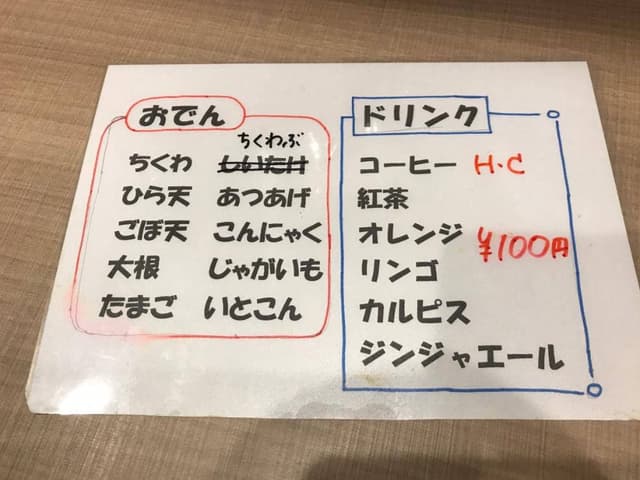 おでん
ちくわぶ
ちくわ しいたけ
ひら天 あつあげ
ごぼ天 こんにゃく
大根 じゃがいも
たまご いとこん
ドリンク
コーヒー H・C
紅茶
オレンジ
¥100円
リンゴ
カルピス
ジンジャエール